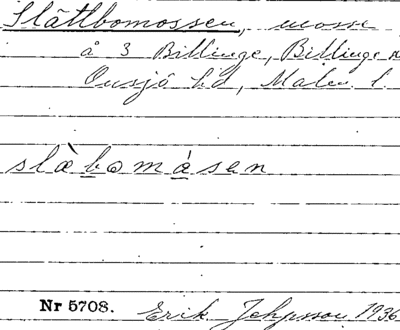 Slättbomossen, mosse
å 3 Billinge, Billinge
Onsjö hd, Malm. l.
slæ̀bomásen
Nr 5708. Erik Jeppsson 1936